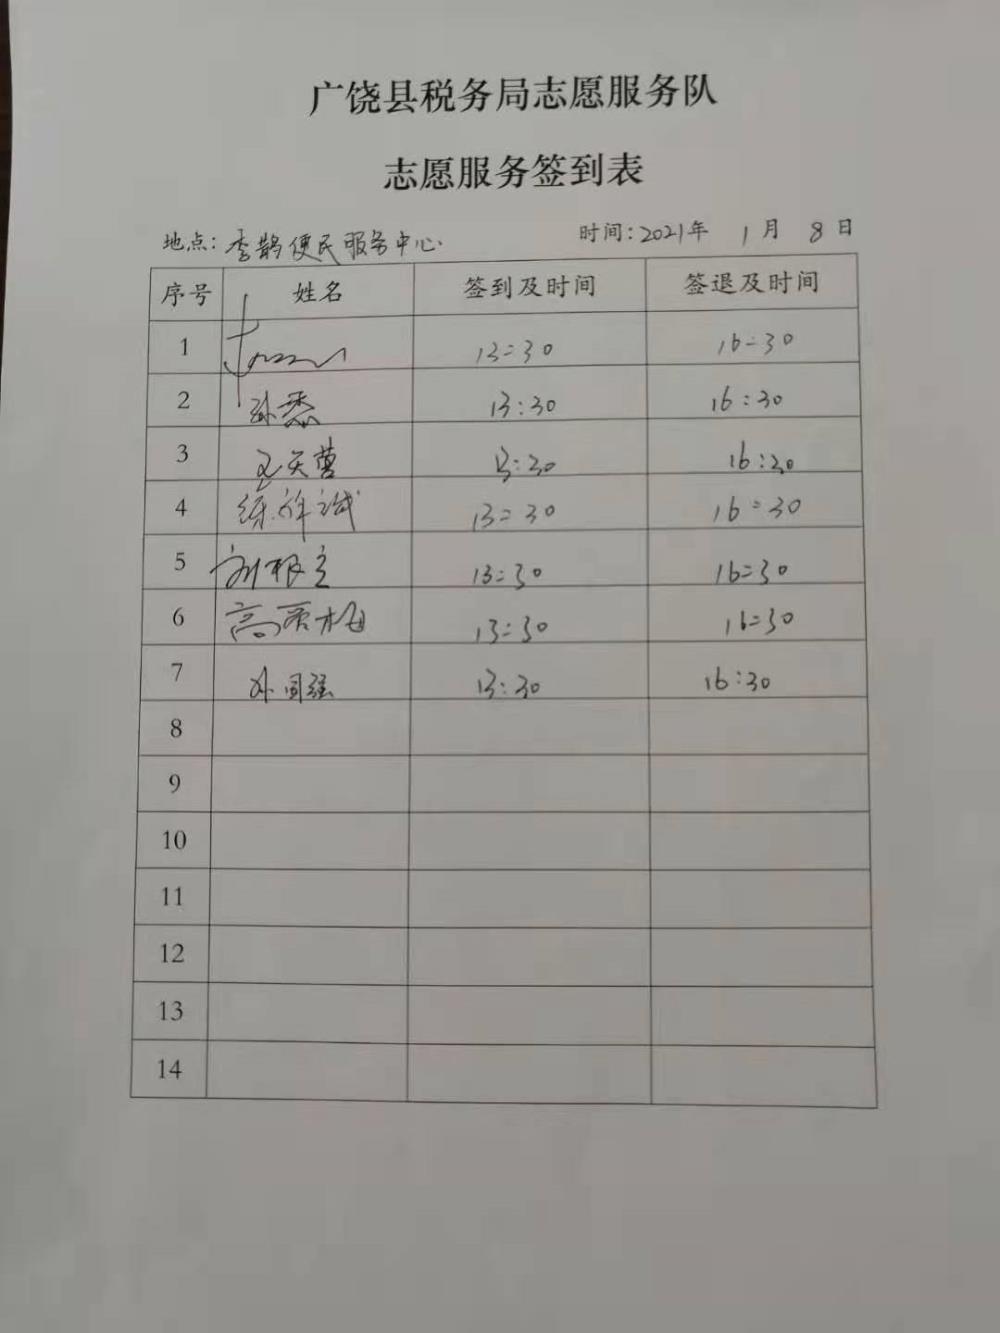 广饶县税务局志愿服务队
志愿服务签到表
地点：李鹊便民服务中心 时间：2021年 1月 8日
序号 姓名 签到及时间 签退及时间
1 13:30 16:30
2 13:30 16:30
3 13:30 16:30
4 13:30 16:30
5 刘根立 13:30 16:30
6 13:30 16:30
7 孙国强 13:30 16:30
8
9
10
11
12
13
14